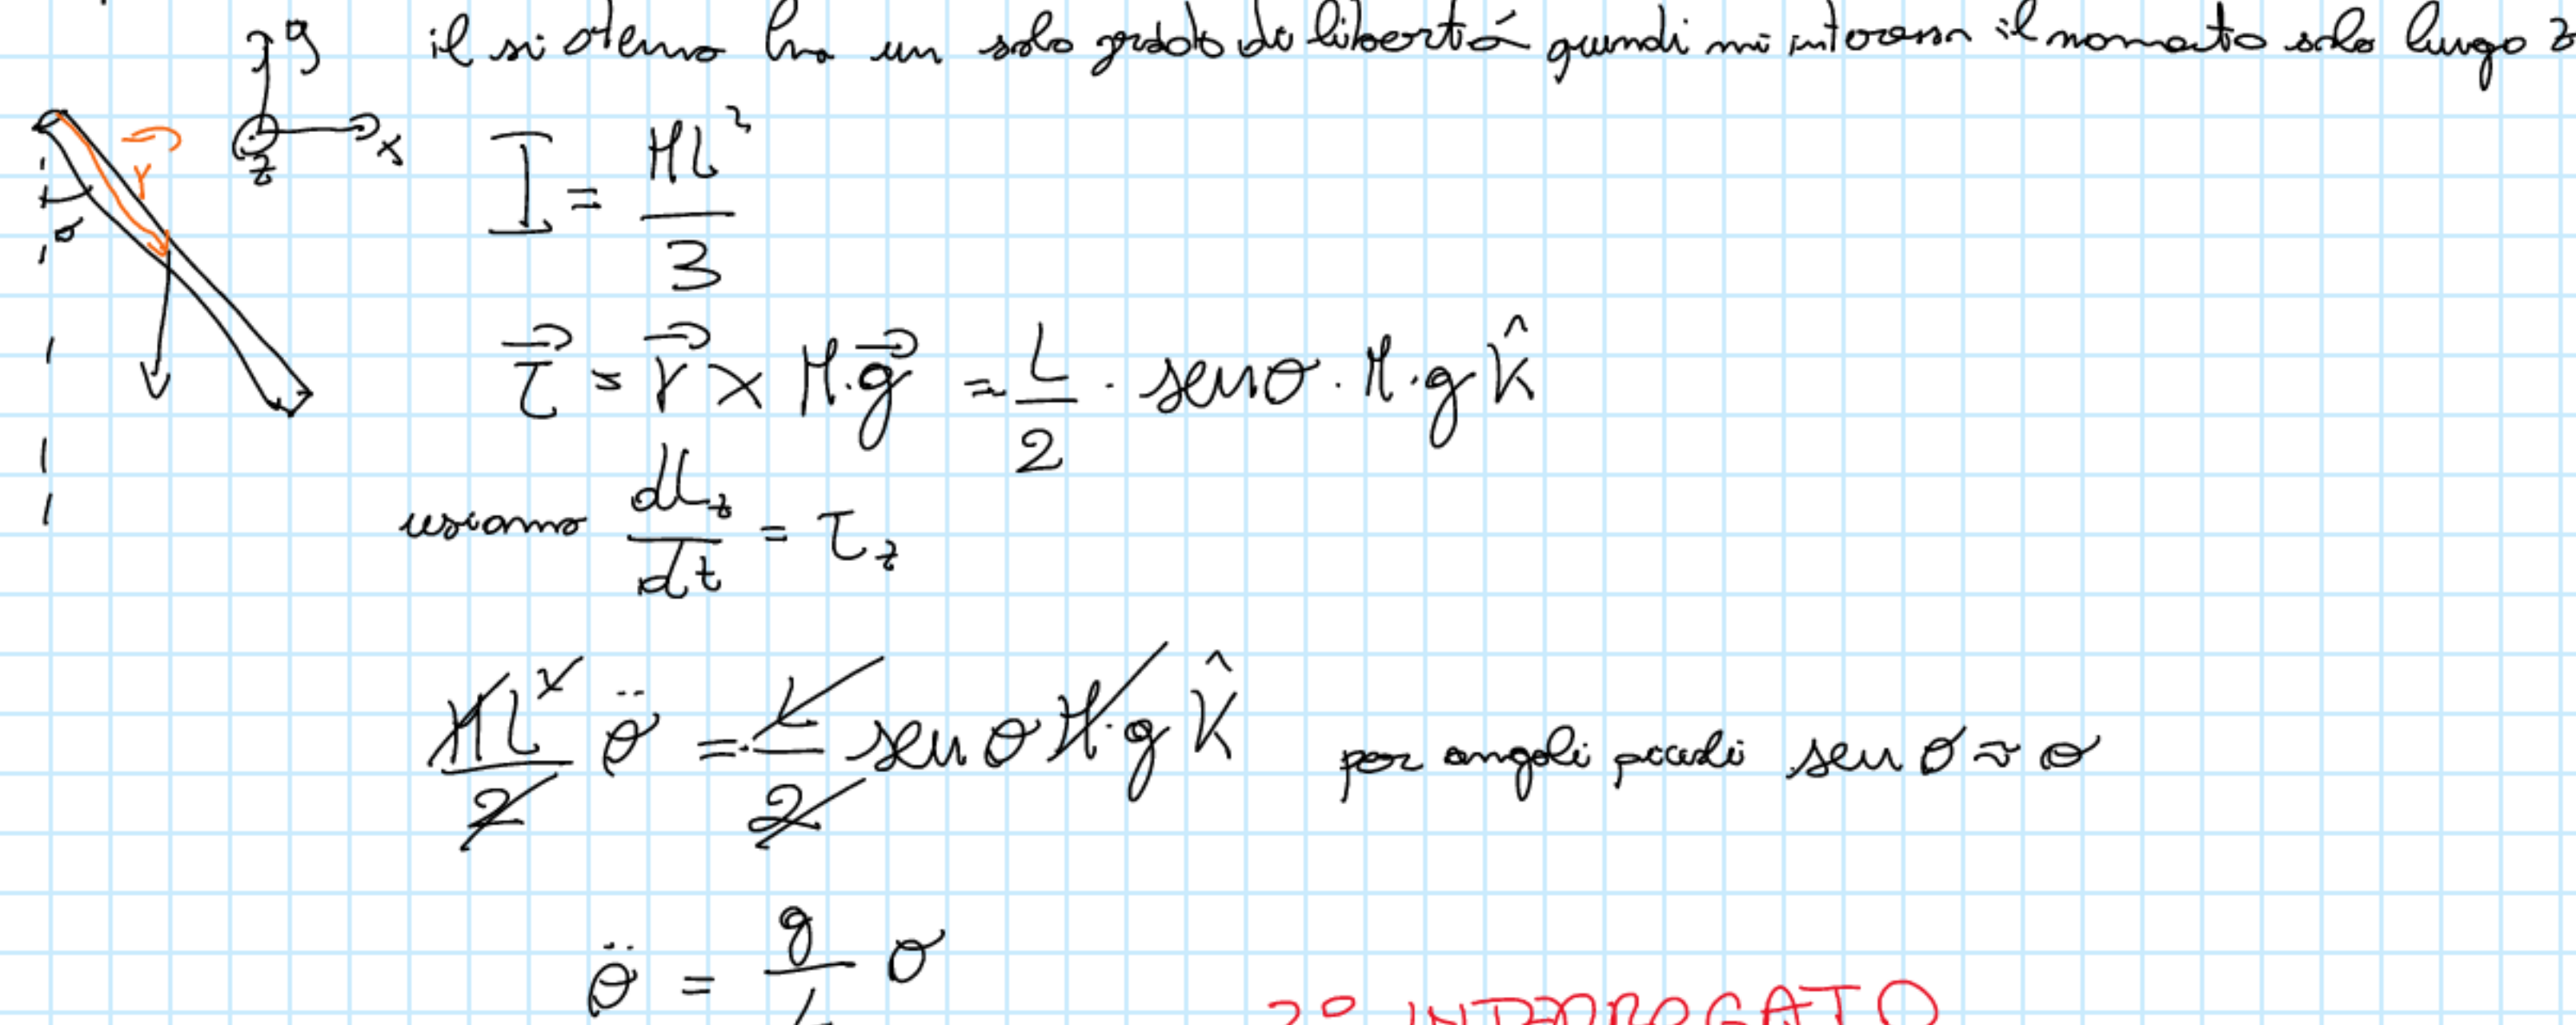 y il sistema ha un solo grado di libertá quindi mi interessa il momento solo lungo z
x
z
r
θ
I = ML²/3
τ⃗ = r⃗ × M·g⃗ = L/2 · senθ · M·g k̂
usiamo dL_z/dt = τ_z
ML²/2 θ̈ = L/2 sen θ M·g k̂ per angoli piccoli sen θ ≈ θ
θ̈ = g/L θ
2° INTERROGATO